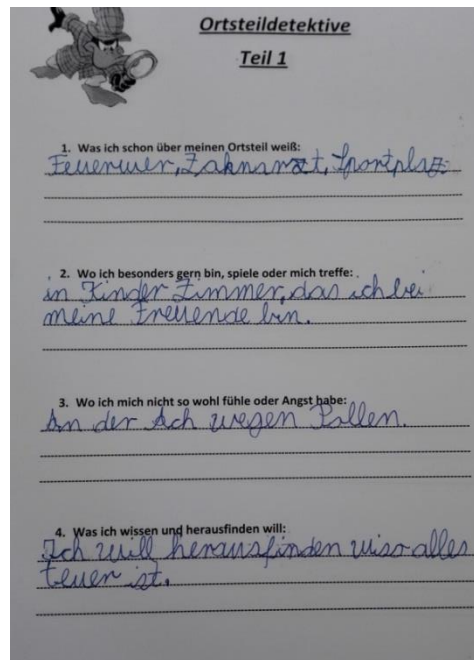 Ortsteildetektive
Teil 1
1. Was ich schon über meinen Ortsteil weiß:
Feuerwer, Zahnarzt, Sportplaz
2. Wo ich besonders gern bin, spiele oder mich treffe:
in Kinder Zimmer, das ich bei
meine Freuende bin.
3. Wo ich mich nicht so wohl fühle oder Angst habe:
An der Ach wegen Pollen.
4. Was ich wissen und herausfinden will:
Ich will herausfinden wiso alles
teuer ist.